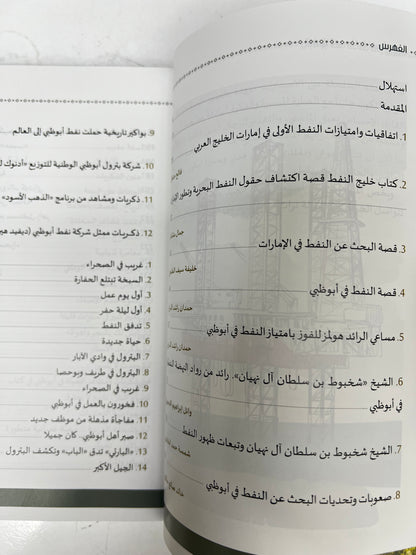 الفهرس
استهلال
المقدمة
1. اتفاقيات وامتيازات النفط الأولى في إمارات الخليج العربي
2. كتاب خليج النفط قصة اكتشاف حقول النفط البحرية وتطور
3. قصة البحث عن النفط في الإمارات
خليفة سيف
4. قصة النفط في أبوظبي
حمدان راشد
5. مساعي الرائد هولمز للفوز بامتياز النفط في أبوظبي
حمدان راشد
6. الشيخ «شخبوط بن سلطان آل نهيان».. رائد من رواد النهضة
في أبوظبي
وائل إبراهيم
7. الشيخ شخبوط بن سلطان آل نهيان وتبعات ظهور النفط
شمسة حمد
8. صعوبات وتحديات البحث عن النفط في أبوظبي
9. بواكير تاريخية حملت نفط أبوظبي إلى العالم
10. شركة بترول أبوظبي الوطنية للتوزيع «أدنوك
11. ذكريات ومشاهد من برنامج «الذهب الأسود»
12. ذكريات ممثل شركة نفط أبوظبي (ديفيد
1. غريب في الصحراء
2. السبخة تبتلع الحفارة
3. أول يوم عمل
4. أول ليلة حفر
5. تدفق النفط
6. حياة جديدة
7. البترول في وادي الآبار
8. البترول في طريف وبوحصا
9. غريب في الصحراء
10. فخورون بالعمل في أبوظبي
11. مفاجأة مذهلة من موظف جديد
12. صبر أهل أبوظبي.. كان جميلا
13. «البارتي» تدق «الباب» وتكشف البترول
14. الجيل الأكبر